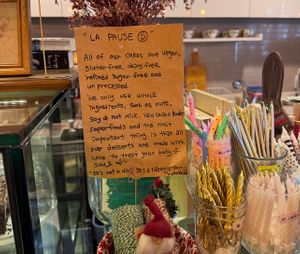 "LA PAUSE"
All of our cakes are vegan,
gluten-free, dairy-free,
refined sugar-free and
unprocessed.
We only use whole
ingredients, such as nuts,
soy & nut milk, raw cacao &
superfoods and the most
important thing is that all
our desserts are made with
Love to treat your body &
soul
it's not a diet, it's a lifestyle